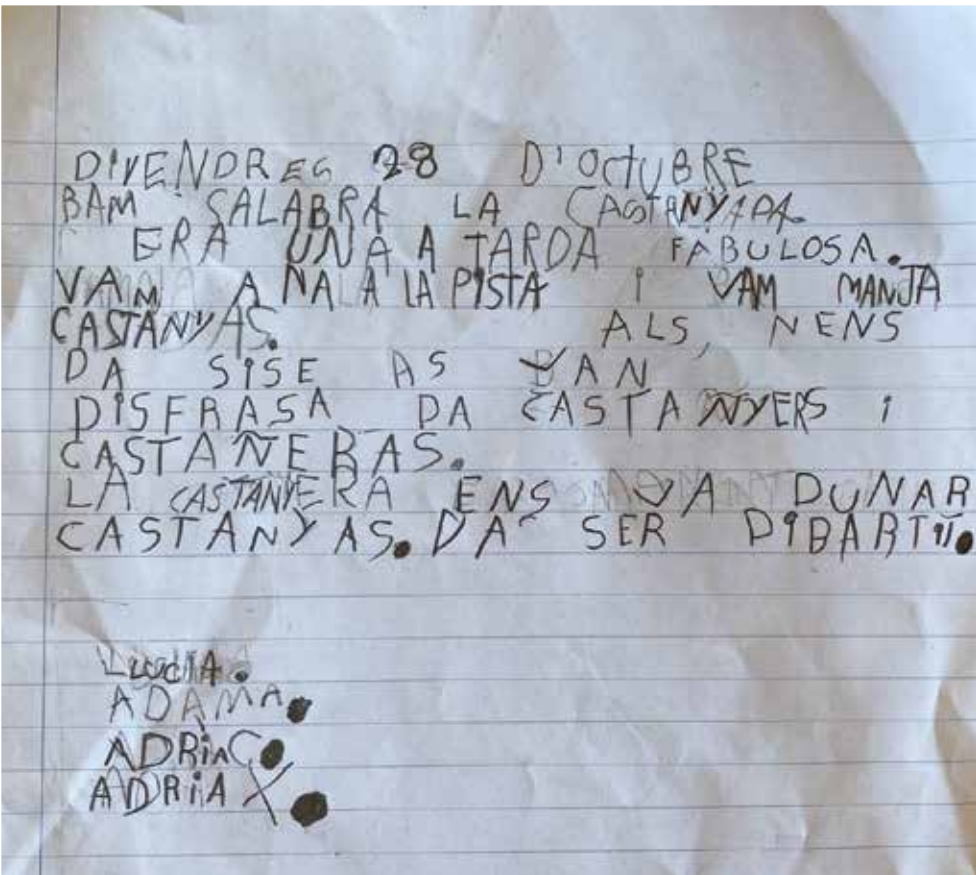 DIVENDRES 28 D'OCTUBRE
BAM SALABRA LA CASTANYADA.
ERA UNA A TARDA FABULOSA.
VAM A NA A LA PISTA I VAM MANJA
CASTANYAS. ALS, NENS
DA SISE AS VAN
DISFRASA DA CASTANYERS i
CASTAÑERAS.
LA CASTANYERA ENS VA DUNAR
CASTANYAS. VA SER DIBARTII.
LucIA.
ADAMA.
ADRIA C.
ADRIA X.